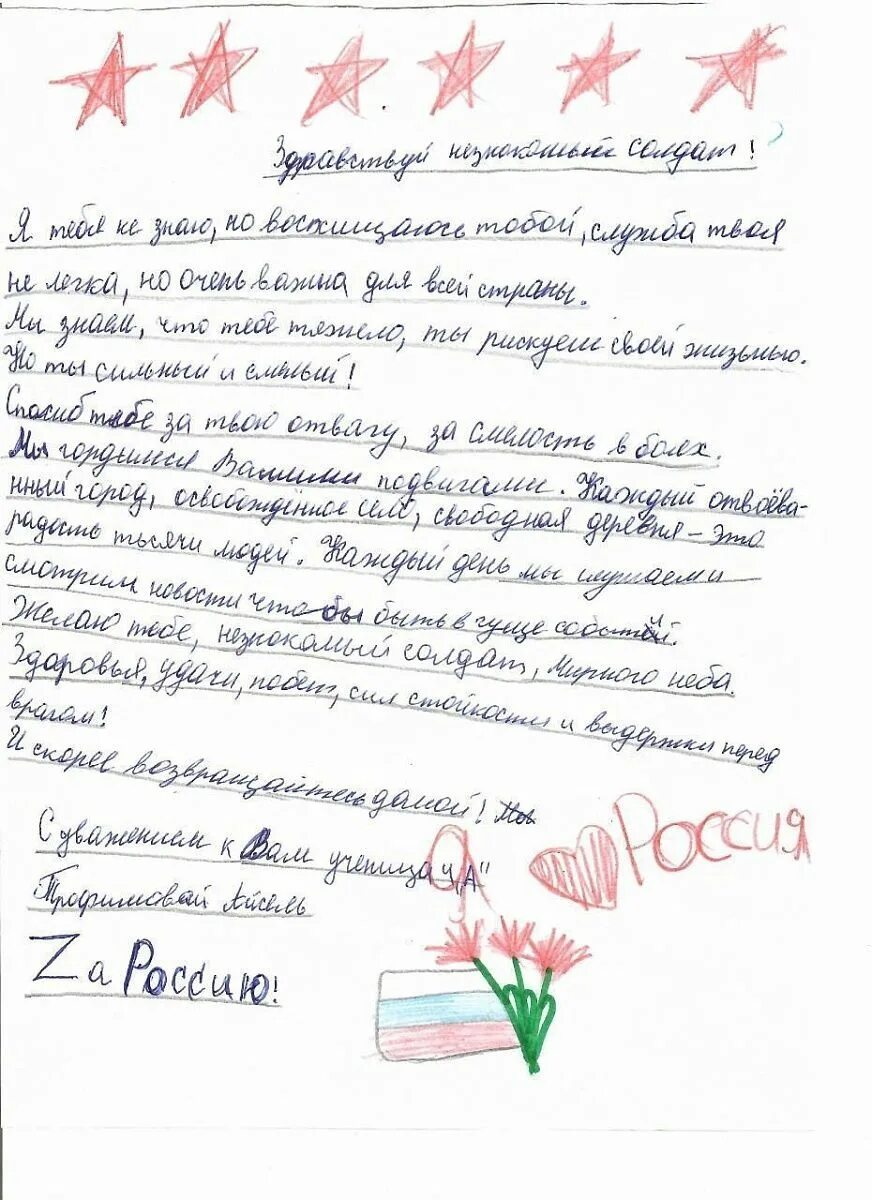 Здравствуй незнокомый солдат!
Я тебя не знаю, но восхищаюсь тобой, служба твоя
не легка, но очень важна для всей страны.
Мы знаем, что тебе тяжело, ты рискуеш своей жизьнью.
Но ты сильный и смелый!
Спосиб тебе за твою отвагу, за смелость в боях.
Мы гордимся Вашими подвигами. Каждый отвоёва-
нный город, освобождённое село, свободная деревня - это
радость тысячи людей. Каждый день мы слушаем и
смотрим новости что бы быть в гуще событий.
Желаю тебе, незнокомый солдат, Мирного неба.
Здоровья, удачи, побед, сил стойкости и выдержки перед
врагом!
И скорее возвращайтесь домой!
С уважением к Вам ученица 4 "А"
Трофимовай Айсель
Zа Россию!
Я Россия